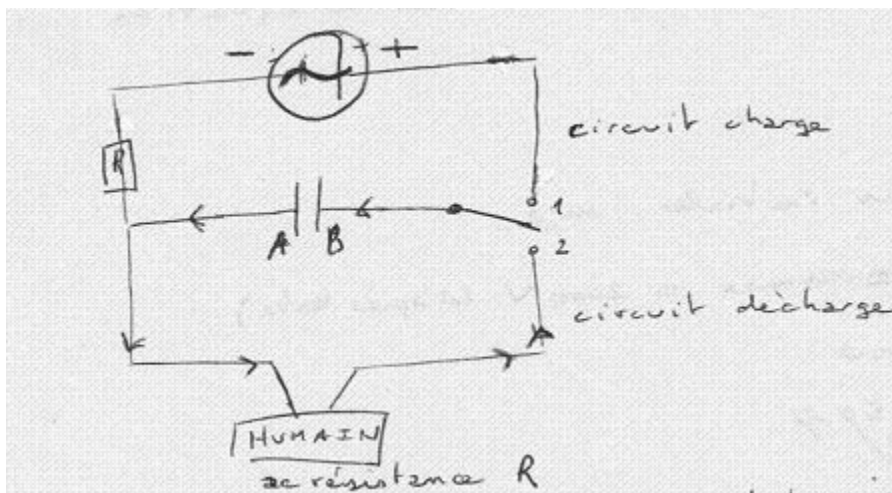 - +
circuit charge
R
1
A B
2
circuit décharge
HUMAIN
résistance R